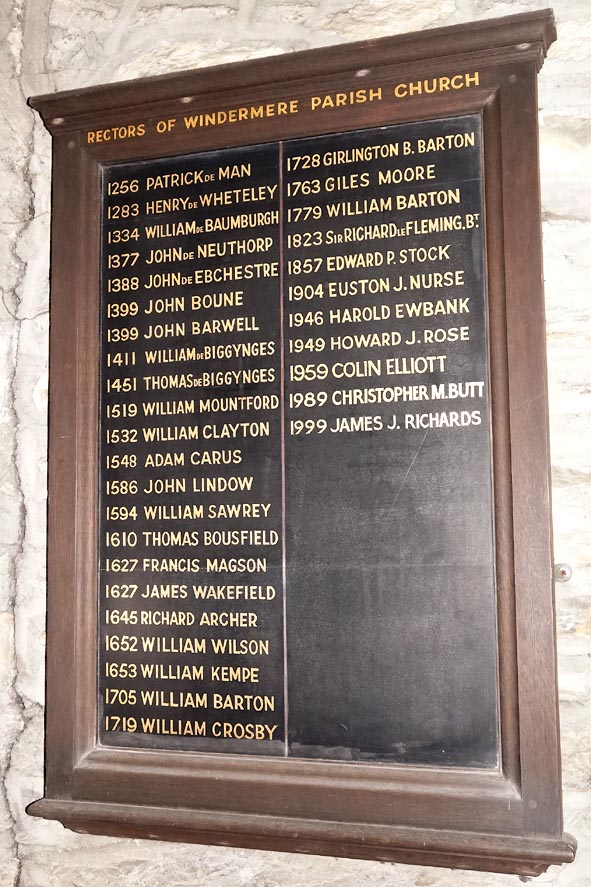 RECTORS OF WINDERMERE PARISH CHURCH
1256 PATRICK DE MAN
1283 HENRY DE WHETELEY
1334 WILLIAM DE BAUMBURGH
1377 JOHN DE NEUTHORP
1388 JOHN DE EBCHESTRE
1399 JOHN BOUNE
1399 JOHN BARWELL
1411 WILLIAM DE BIGGYNGES
1451 THOMAS DE BIGGYNGES
1519 WILLIAM MOUNTFORD
1532 WILLIAM CLAYTON
1548 ADAM CARUS
1586 JOHN LINDOW
1594 WILLIAM SAWREY
1610 THOMAS BOUSFIELD
1627 FRANCIS MAGSON
1627 JAMES WAKEFIELD
1645 RICHARD ARCHER
1652 WILLIAM WILSON
1653 WILLIAM KEMPE
1705 WILLIAM BARTON
1719 WILLIAM CROSBY
1728 GIRLINGTON B. BARTON
1763 GILES MOORE
1779 WILLIAM BARTON
1823 SIR RICHARD LE FLEMING. BT
1857 EDWARD P. STOCK
1904 EUSTON J. NURSE
1946 HAROLD EWBANK
1949 HOWARD J. ROSE
1959 COLIN ELLIOTT
1989 CHRISTOPHER M. BUTT
1999 JAMES J. RICHARDS